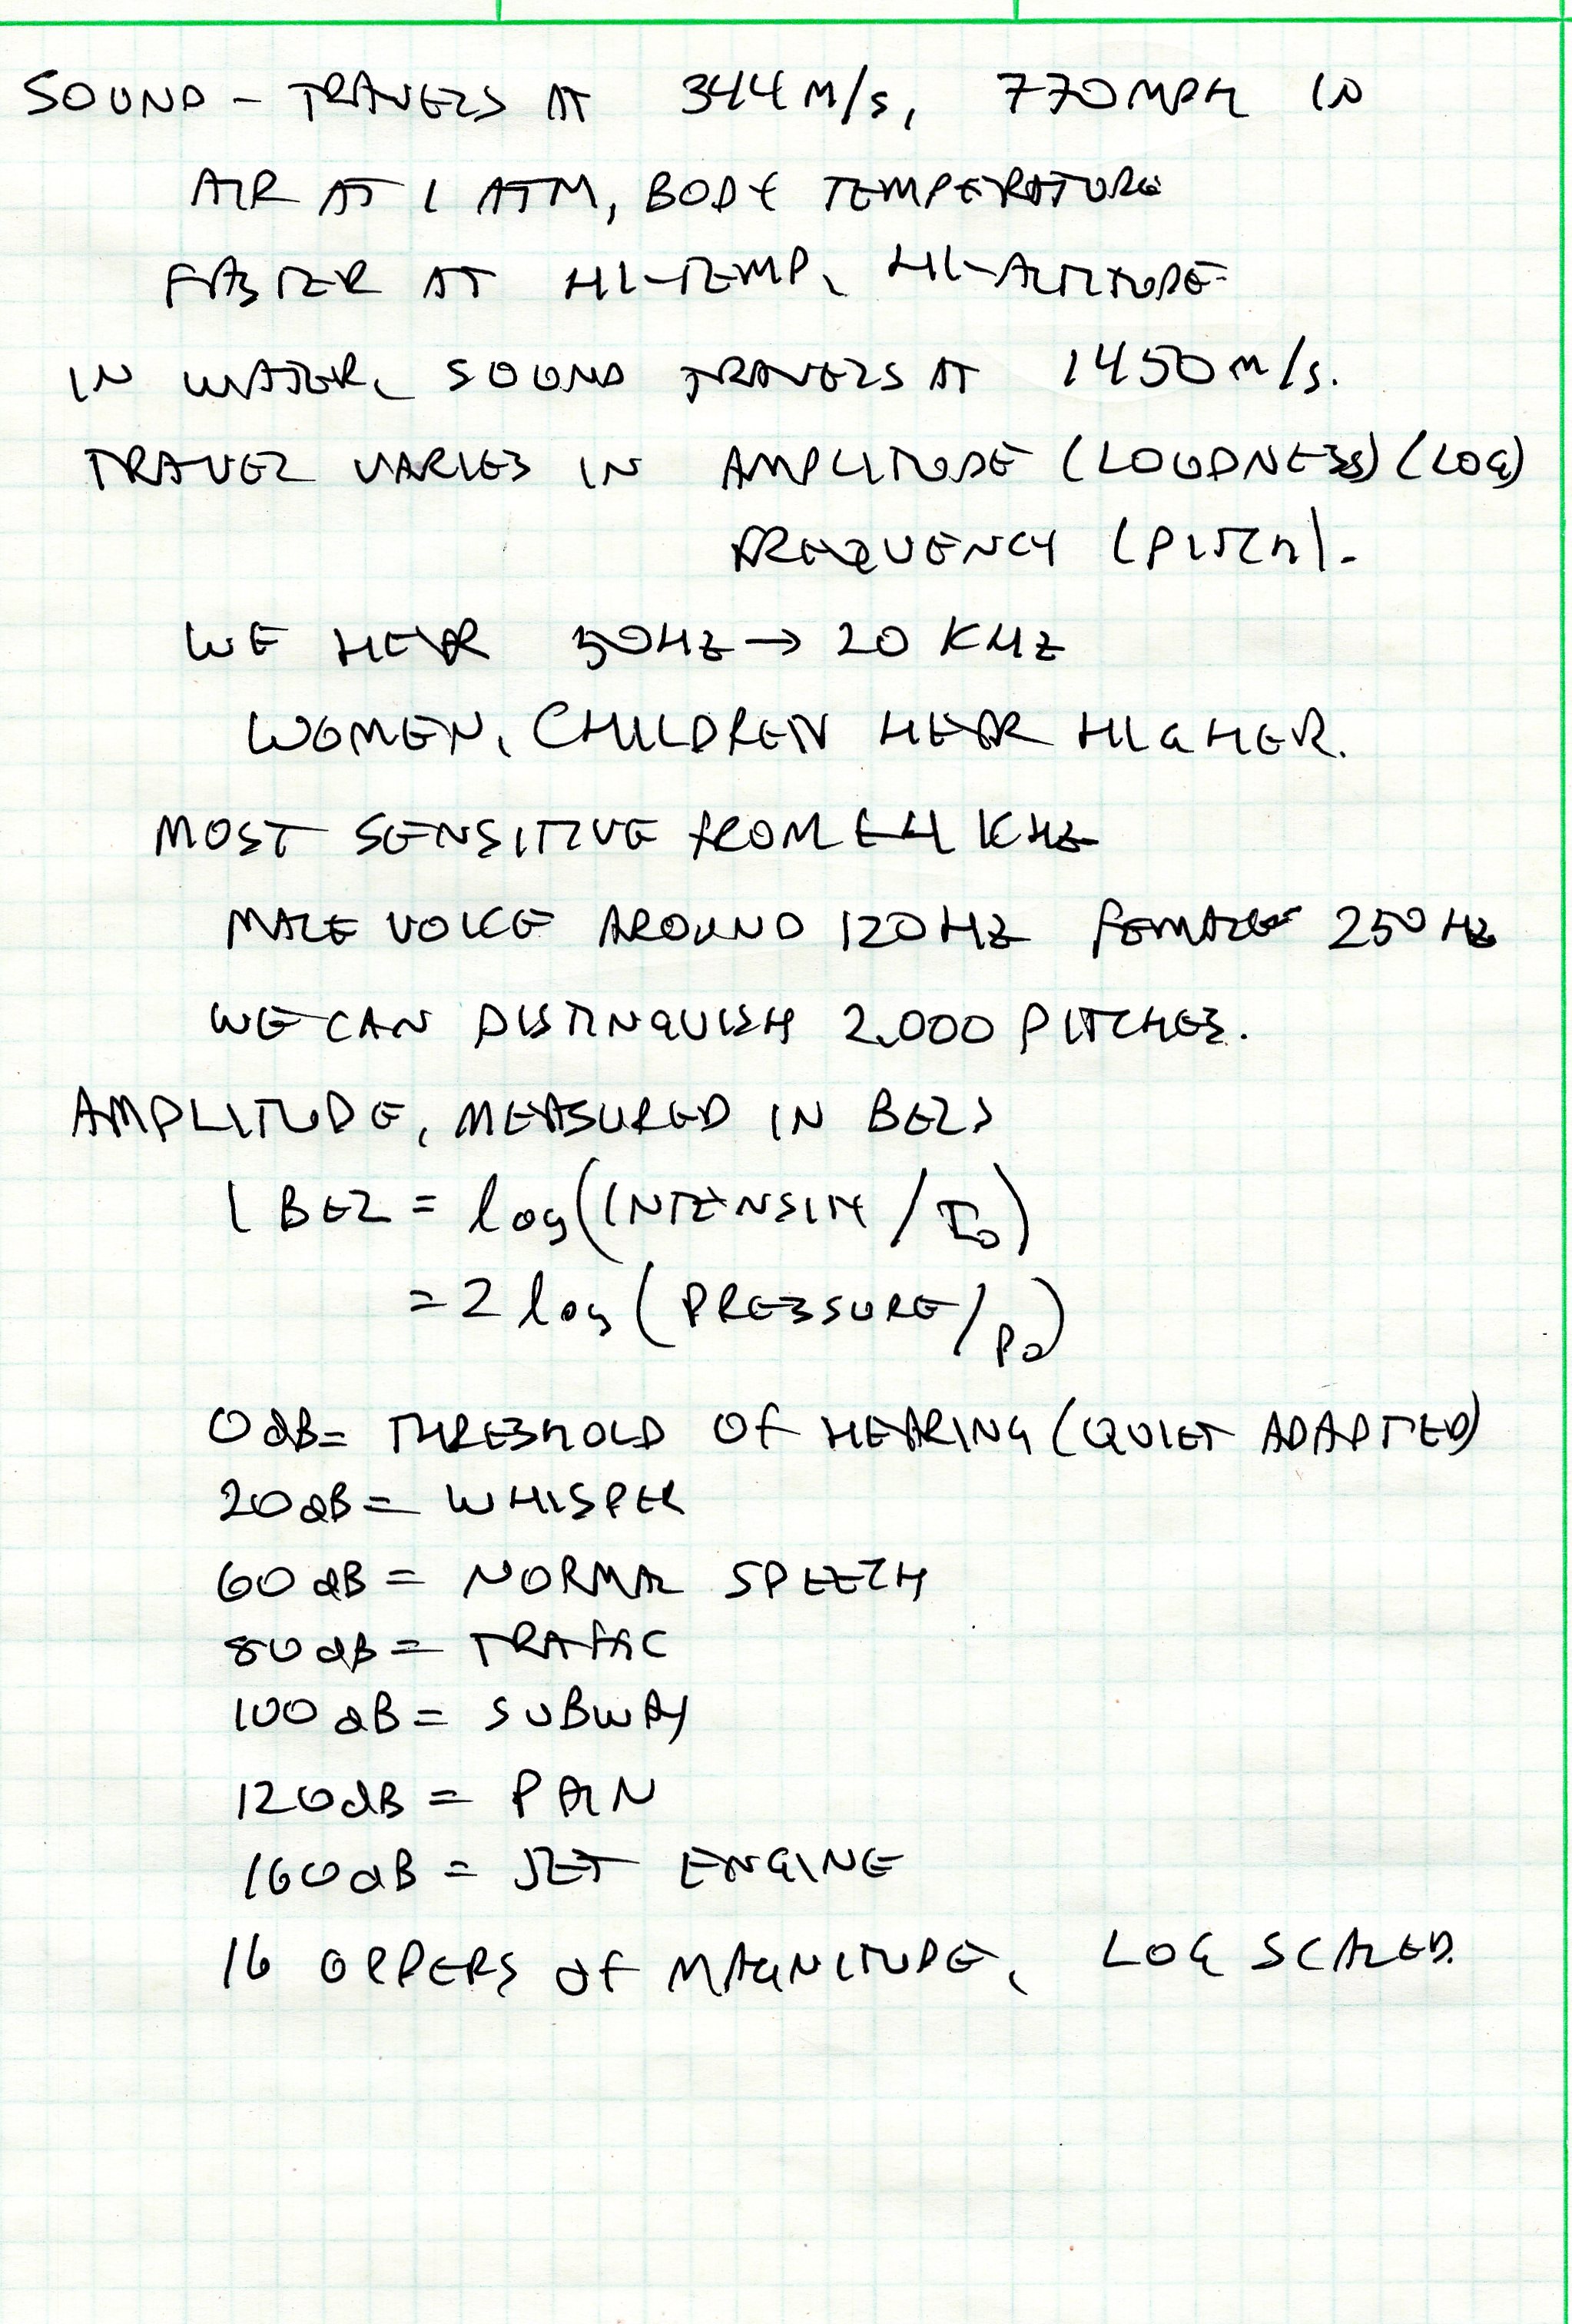 SOUND - TRAVELS AT 344 M/s, 770 MPH IN
AIR AT 1 ATM, BODY TEMPERATURE
FASTER AT HI-TEMP, HI-ALTITUDE
IN WATER, SOUND TRAVELS AT 1450 m/s.
TRAVEL VARIES IN AMPLITUDE (LOUDNESS) (LOG)
FREQUENCY (PITCH).
WE HEAR 50HZ → 20 KHZ
WOMEN, CHILDREN HEAR HIGHER.
MOST SENSITIVE FROM 1-4 KHZ
MALE VOICE AROUND 120 HZ FEMALE 250 HZ
WE CAN DISTINQUISH 2,000 PITCHES.
AMPLITUDE, MEASURED IN BELS
1 BEL = log(INTENSITY / I₀)
= 2 log (PRESSURE / P₀)
0 dB = THRESHOLD OF HEARING (QUIET ADAPTED)
20 dB = WHISPER
60 dB = NORMAL SPEECH
80 dB = TRAFFIC
100 dB = SUBWAY
120 dB = PAIN
160 dB = JET ENGINE
16 ORDERS OF MAGNITUDE, LOG SCALED.